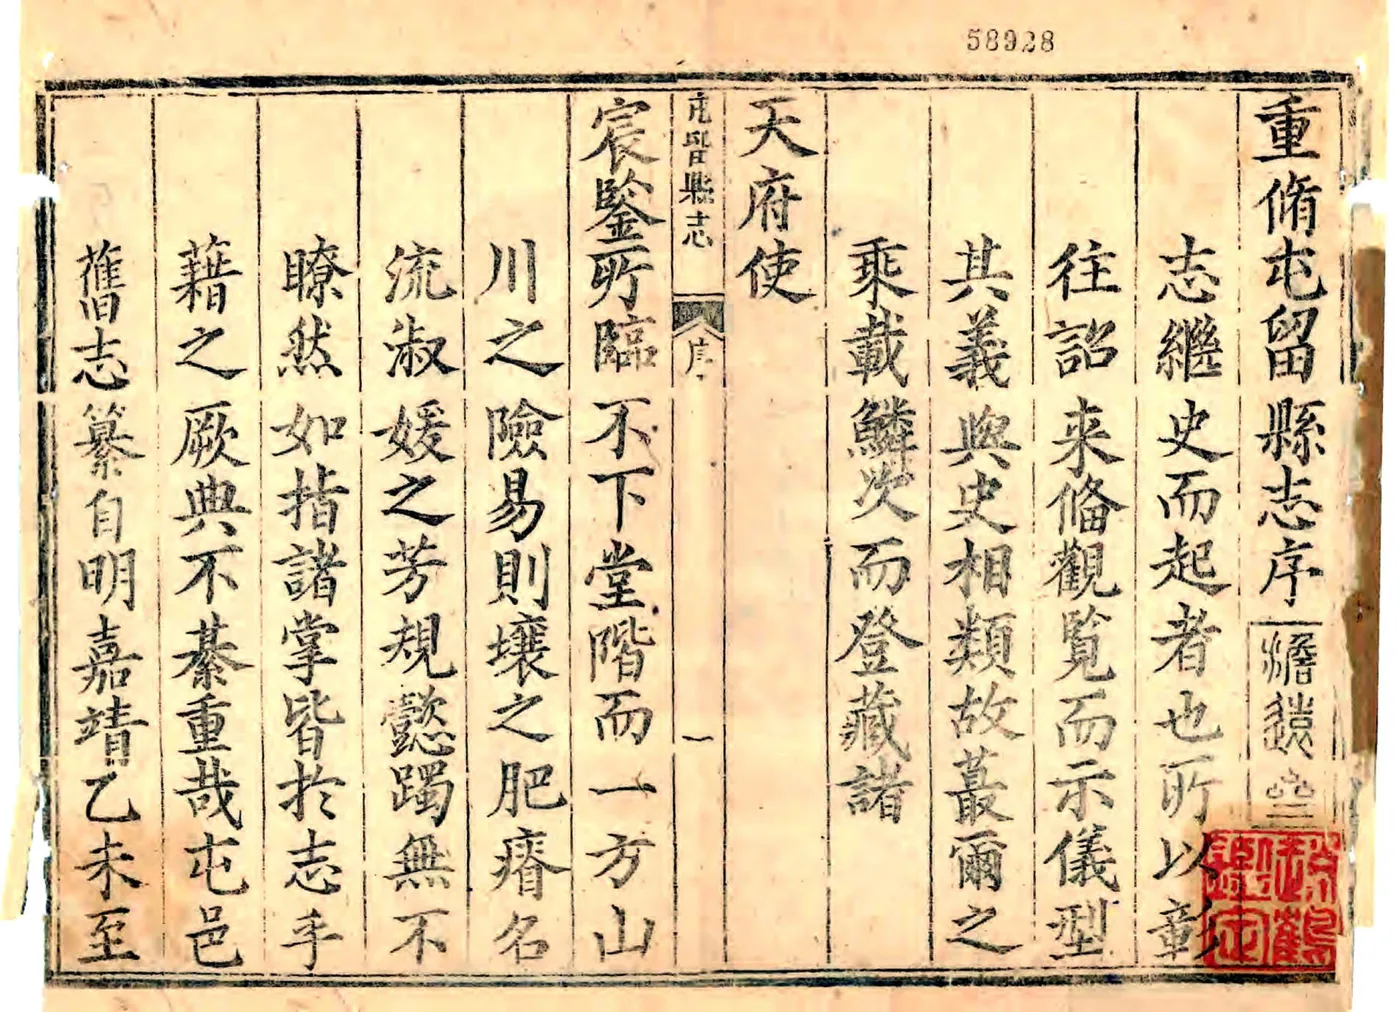 58928
重脩屯留縣志序
志繼史而起者也所以彰
往詔来俻觀覧而示儀型
其義與史相類故蕞爾之
乘載鱗次而登藏諸
天府使
屯留縣志
序
一
宸鑒所臨不下堂階而一方山
川之險易則壤之肥瘠名
流淑媛之芳規懿躅無不
瞭然如指諸掌皆於志乎
藉之厥典不綦重哉屯邑
舊志纂自明嘉靖乙未至